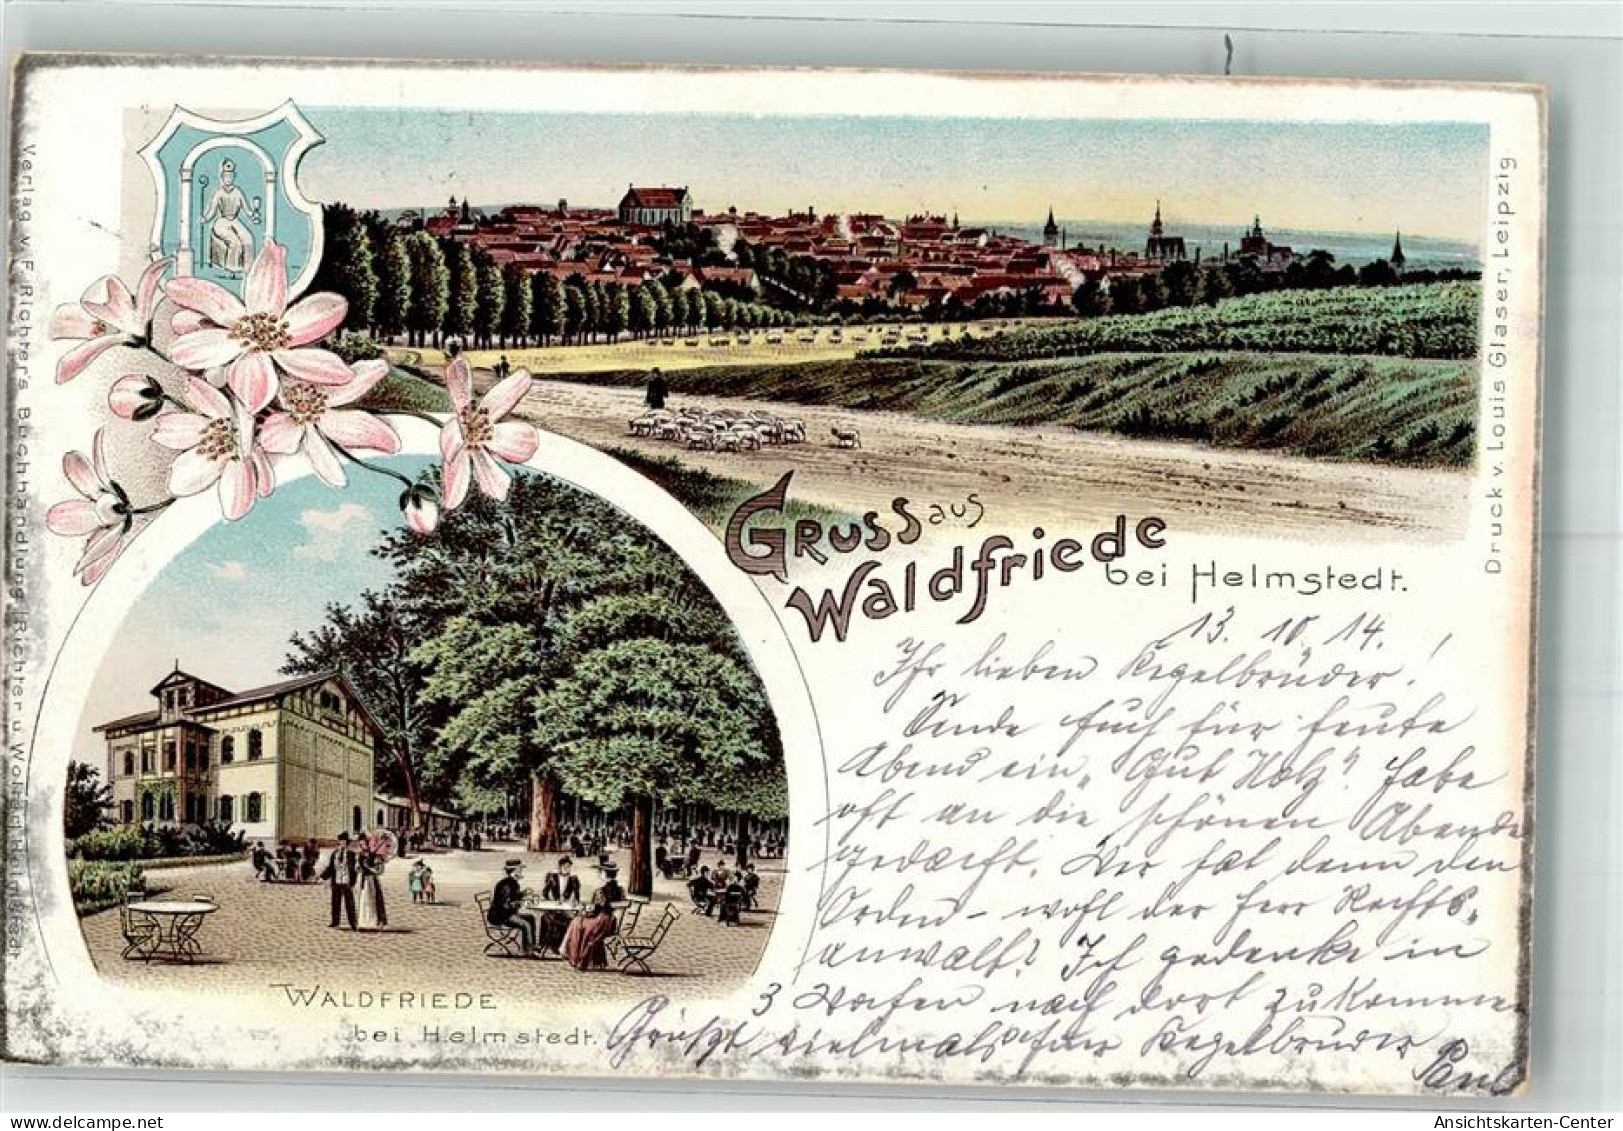 Verlag v. F. Richter's Buchhandlung (Richter u. Wolter) Helmstedt
Druck v. Louis Glaser, Leipzig.
GRUSS aus
Waldfriede
bei Helmstedt.
13. 10. 14.
Ihr lieben Kegelbrüder!
Sende Euch für heute
Abend ein „Gut Holz"! Habe
oft an die schönen Abende
gedacht. Wer hat denn den
Orden – wohl der Herr Rechts-
anwalt? Ich gedenke in
3 Wochen nach dort zu kommen
Grüßt vielmals Euer Kegelbruder
Paul
WALDFRIEDE
bei Helmstedt.
Ansichtskarten-Center